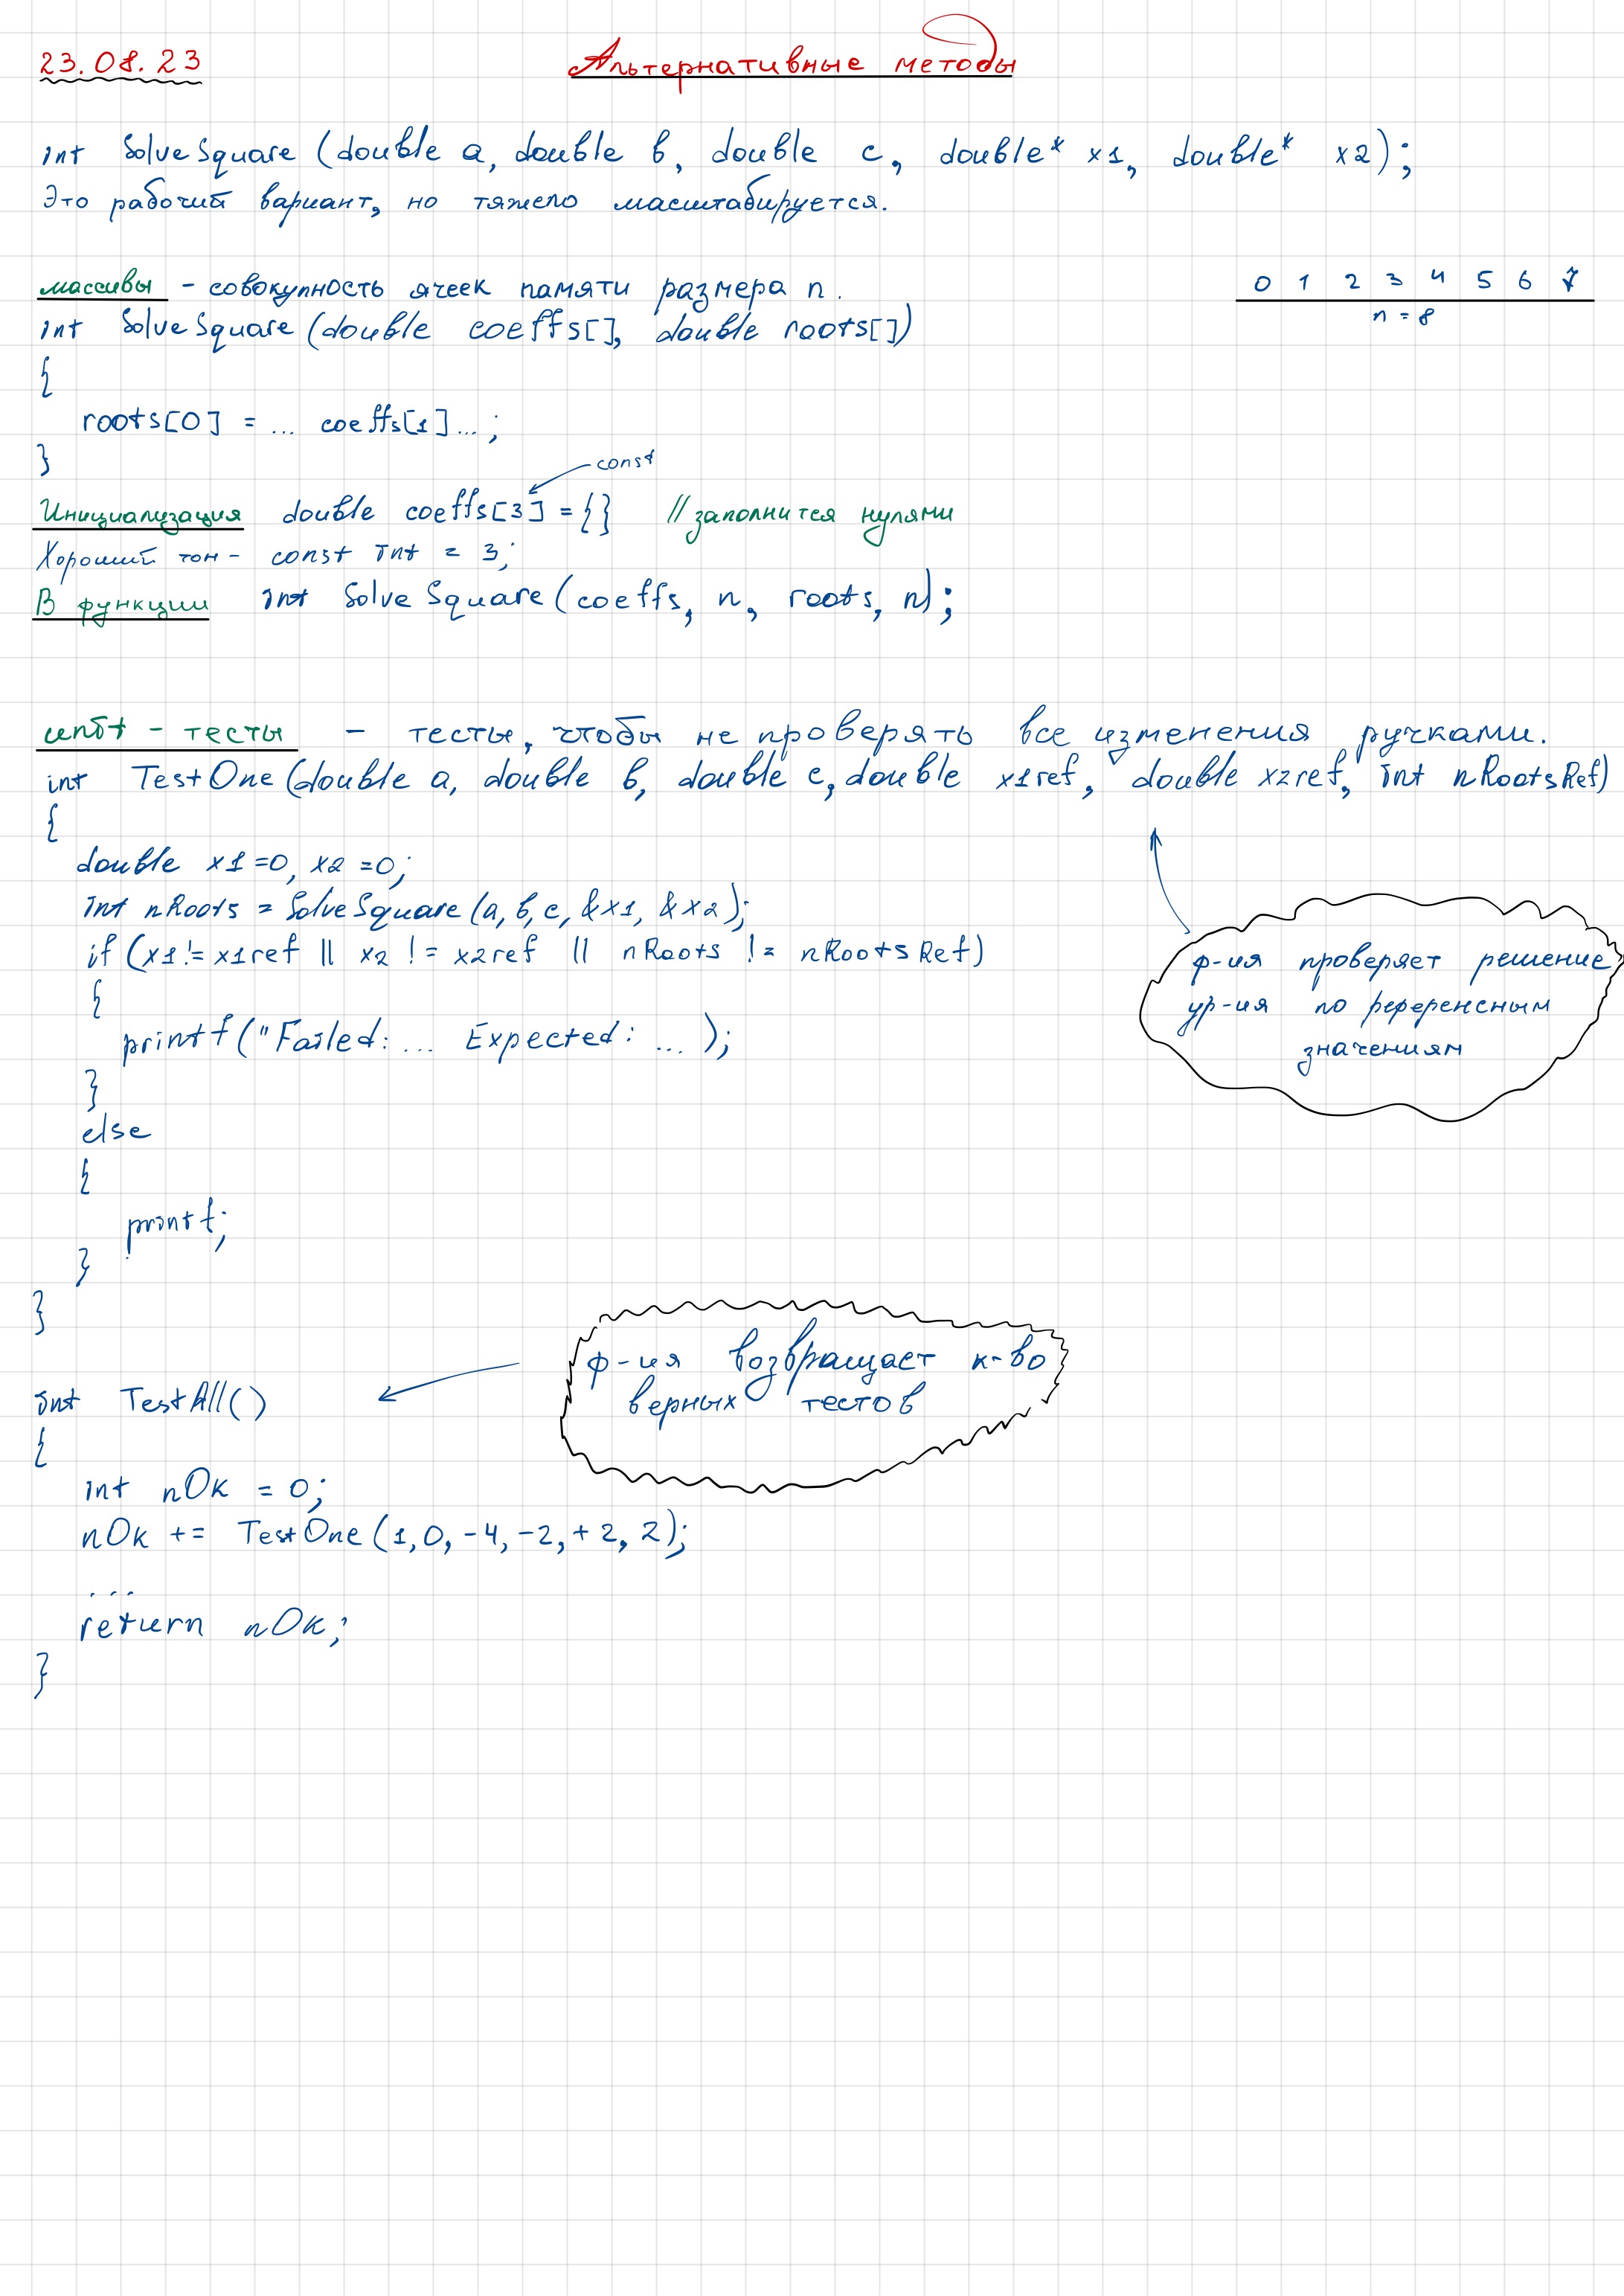 23.08.23
Альтернативные методы
int SolveSquare (double a, double b, double c, double* x1, double* x2);
Это рабочий вариант, но тяжело масштабируется.
массивы - совокупность ячеек памяти размера n.
0 1 2 3 4 5 6 7
n = 8
int SolveSquare (double coeffs[], double roots[])
{
roots[0] = ... coeffs[1]...;
}
const
Инициализация double coeffs[3] = {} // заполнится нулями
Хороший тон - const int = 3;
В функции int SolveSquare (coeffs, n, roots, n);
unit - тесты - тесты, чтобы не проверять все изменения ручками.
int TestOne (double a, double b, double c, double x1ref, double x2ref, int nRootsRef)
{
double x1=0, x2=0;
int nRoots = SolveSquare (a, b, c, &x1, &x2);
if (x1 != x1ref || x2 != x2ref || nRoots != nRootsRef)
{
printf ("Failed: ... Expected: ... );
}
else
{
printf;
}
}
ф-ия проверяет решение
ур-ия по референсным
значениям
ф-ия возвращает к-во
верных тестов
int TestAll()
{
int nOk = 0;
nOk += TestOne (1, 0, -4, -2, +2, 2);
...
return nOk;
}